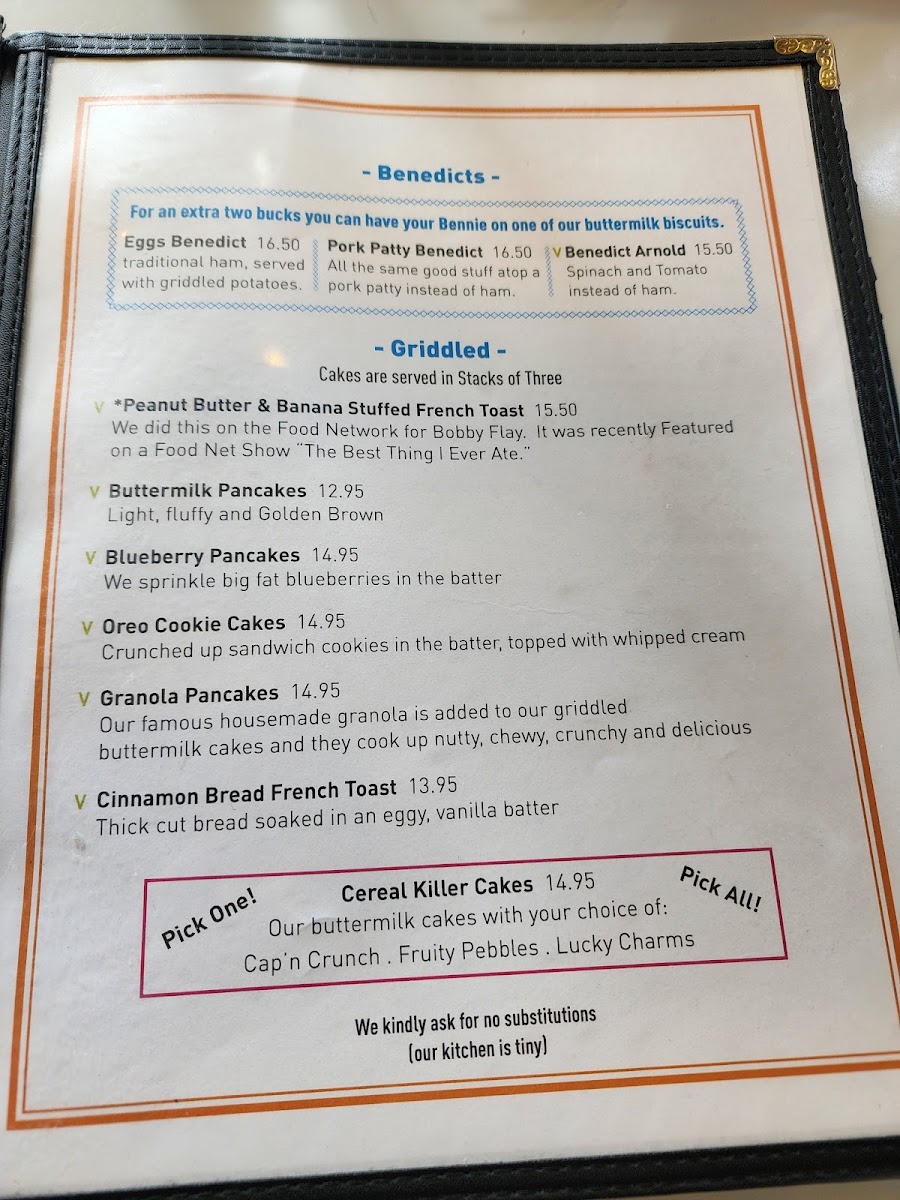 - Benedicts -
For an extra two bucks you can have your Bennie on one of our buttermilk biscuits.
Eggs Benedict 16.50
traditional ham, served
with griddled potatoes.
Pork Patty Benedict 16.50
All the same good stuff atop a
pork patty instead of ham.
V Benedict Arnold 15.50
Spinach and Tomato
instead of ham.
- Griddled -
Cakes are served in Stacks of Three
V *Peanut Butter & Banana Stuffed French Toast 15.50
We did this on the Food Network for Bobby Flay. It was recently Featured
on a Food Net Show "The Best Thing I Ever Ate."
V Buttermilk Pancakes 12.95
Light, fluffy and Golden Brown
V Blueberry Pancakes 14.95
We sprinkle big fat blueberries in the batter
V Oreo Cookie Cakes 14.95
Crunched up sandwich cookies in the batter, topped with whipped cream
V Granola Pancakes 14.95
Our famous housemade granola is added to our griddled
buttermilk cakes and they cook up nutty, chewy, crunchy and delicious
V Cinnamon Bread French Toast 13.95
Thick cut bread soaked in an eggy, vanilla batter
Pick One!
Cereal Killer Cakes 14.95
Pick All!
Our buttermilk cakes with your choice of:
Cap'n Crunch . Fruity Pebbles . Lucky Charms
We kindly ask for no substitutions
(our kitchen is tiny)